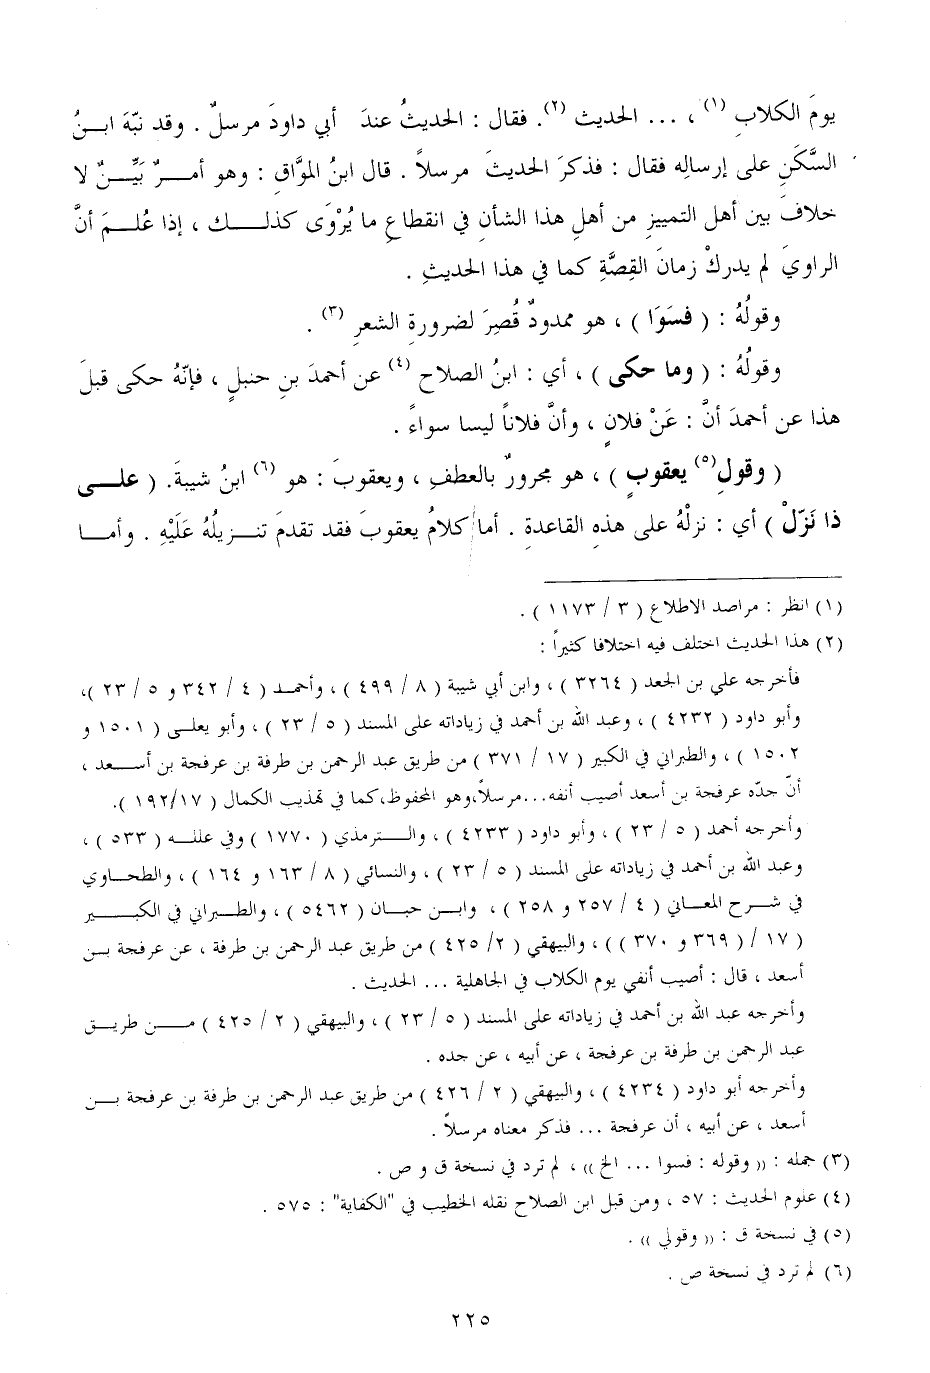 يومَ الكلابِ (١) ، ... الحديث (٢). فقال : الحديثُ عندَ أبي داودَ مرسلٌ . وقد نبّهَ ابنُ
السَّكَنِ على إرسالِه فقال : فذكرَ الحديثَ مرسلاً . قال ابنُ الموَّاقِ : وهو أمرٌ بَيِّنٌ لا
خلافَ بين أهل التمييزِ من أهلِ هذا الشأنِ في انقطاعِ ما يُرْوَى كذلك ، إذا عُلمَ أنَّ
الراويَ لم يدركْ زمانَ القِصَّةِ كما في هذا الحديثِ .
وقولُهُ : ( فسَوَا ) ، هو ممدودٌ قُصِرَ لضرورةِ الشعرِ (٣) .
وقولُهُ : ( وما حكى ) ، أي : ابنُ الصلاح (٤) عن أحمدَ بنِ حنبلٍ ، فإنّهُ حكى قبلَ
هذا عن أحمدَ أنَّ : عَنْ فلانٍ ، وأنَّ فلاناً ليسا سواءً .
( وقولِ(٥) يعقوبٍ ) ، هو مجرورٌ بالعطفِ ، ويعقوبَ : هو (٦) ابنُ شيبةَ. ( على
ذا نَزّلْ ) أي : نزلْهُ على هذهِ القاعدةِ . أما كلامُ يعقوبَ فقد تقدمَ تنزيلُهُ عَلَيْهِ . وأما
(١) انظر : مراصد الاطلاع ( ٣ / ١١٧٣ ) .
(٢) هذا الحديث اختلف فيه اختلافا كثيراً :
فأخرجه علي بن الجعد ( ٣٢٦٤ ) ، وابن أبي شيبة ( ٨ / ٤٩٩ ) ، وأحمد ( ٤ / ٣٤٢ و ٥ / ٢٣ )،
وأبو داود ( ٤٢٣٢ ) ، وعبد الله بن أحمد في زياداته على المسند ( ٥ / ٢٣ ) ، وأبو يعلى ( ١٥٠١ و
١٥٠٢ ) ، والطبراني في الكبير ( ١٧ / ٣٧١ ) من طريق عبد الرحمن بن طرفة بن عرفجة بن أسعد ،
أنّ جدّه عرفجة بن أسعد أصيب أنفه...مرسلاً،وهو المحفوظ،كما في تهذيب الكمال ( ١٩٢/١٧ ).
وأخرجه أحمد ( ٥ / ٢٣ ) ، وأبو داود ( ٤٢٣٣ ) ، والترمذي ( ١٧٧٠ ) وفي علله ( ٥٣٣ ) ،
وعبد الله بن أحمد في زياداته على المسند ( ٥ / ٢٣ ) ، والنسائي ( ٨ / ١٦٣ و ١٦٤ ) ، والطحاوي
في شرح المعاني ( ٤ / ٢٥٧ و ٢٥٨ ) ، وابن حبان ( ٥٤٦٢ ) ، والطبراني في الكبير
( ١٧ /( ٣٦٩ و ٣٧٠ )) ، والبيهقي ( ٢/ ٤٢٥ ) من طريق عبد الرحمن بن طرفة ، عن عرفجة بن
أسعد ، قال : أصيب أنفي يوم الكلاب في الجاهلية ... الحديث .
وأخرجه عبد الله بن أحمد في زياداته على المسند ( ٥ / ٢٣ ) ، والبيهقي ( ٢ / ٤٢٥ ) من طريق
عبد الرحمن بن طرفة بن عرفجة ، عن أبيه ، عن جده .
وأخرجه أبو داود ( ٤٢٣٤ ) ، والبيهقي ( ٢ / ٤٢٦ ) من طريق عبد الرحمن بن طرفة بن عرفجة بن
أسعد ، عن أبيه ، أن عرفجة ... فذكر معناه مرسلاً .
(٣) جمله : (( وقوله : فسوا ... الخ )) ، لم ترد في نسخة ق و ص .
(٤) علوم الحديث : ٥٧ ، ومن قبل ابن الصلاح نقله الخطيب في "الكفاية" : ٥٧٥ .
(٥) في نسخة ق : (( وقولي )) .
(٦) لم ترد في نسخة ص .
٢٢٥